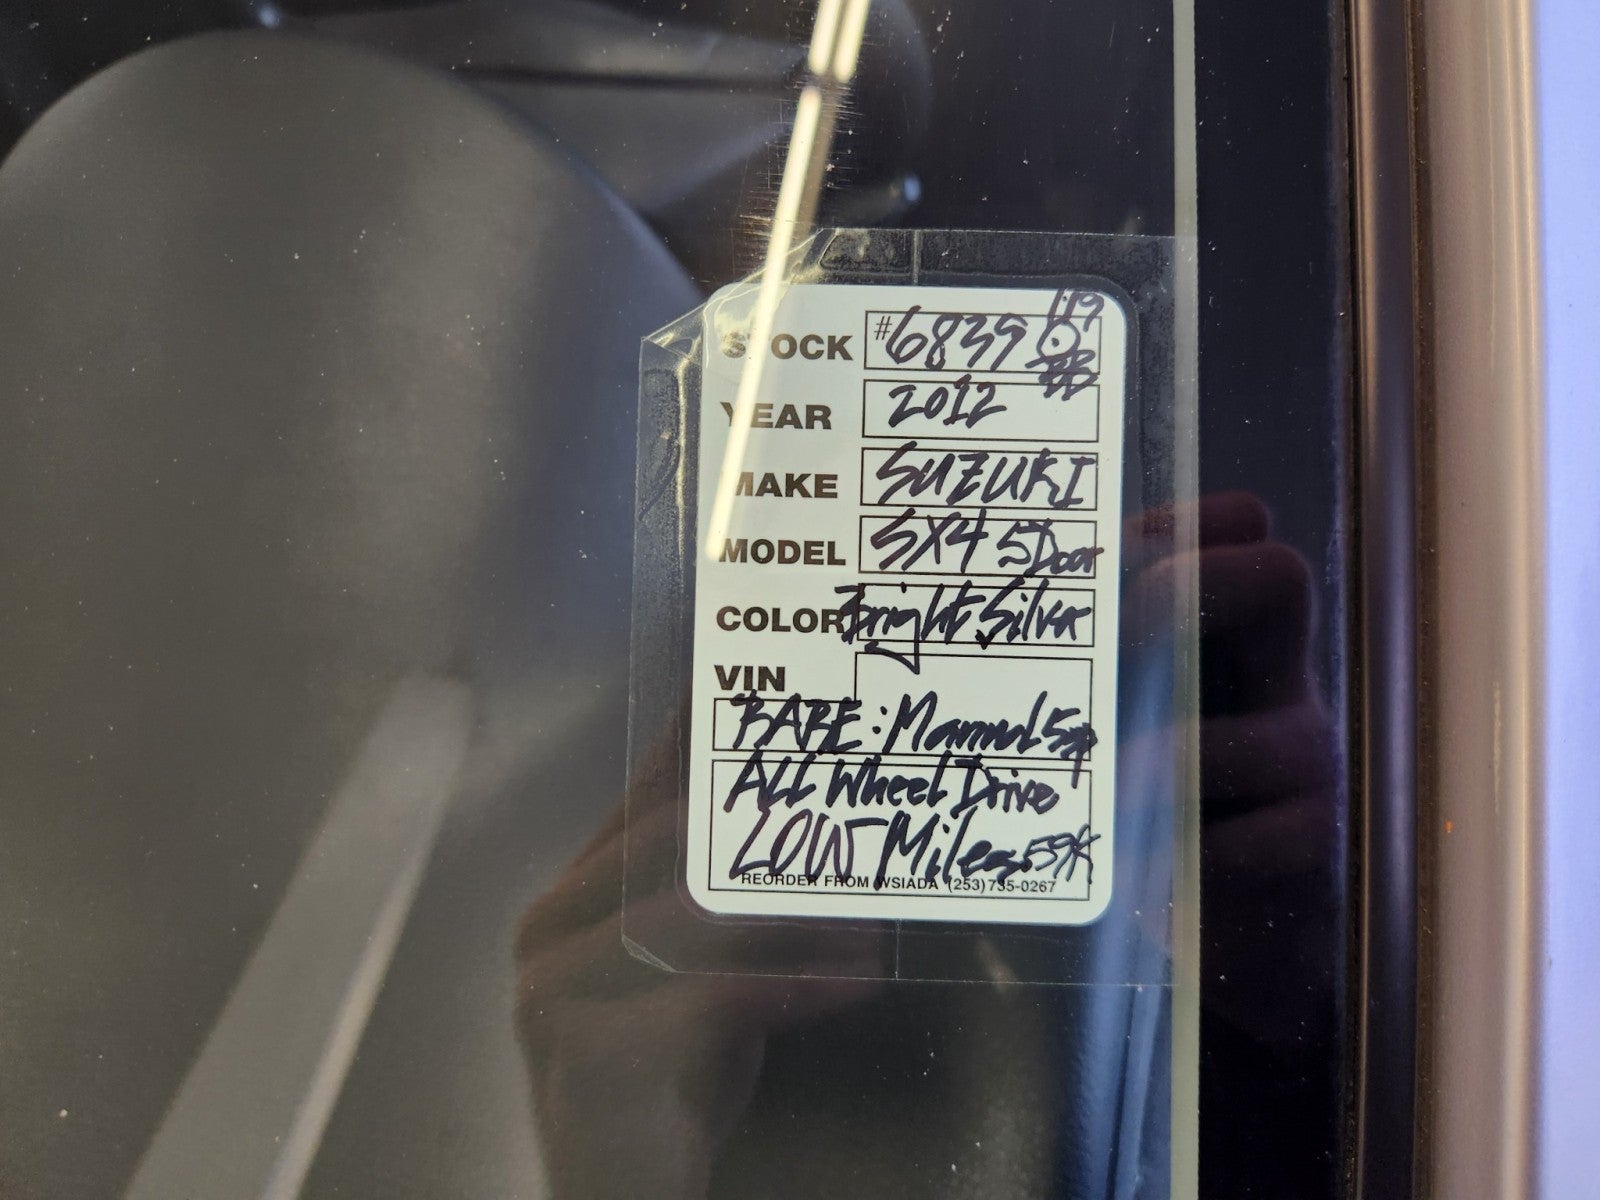 STOCK #6839
YEAR 2012
MAKE SUZUKI
MODEL SX4 5Door
COLOR Bright Silver
VIN
RARE: Manual 5sp
ALL Wheel Drive
LOW Miles 59K
REORDER FROM WSIADA (253)735-0267